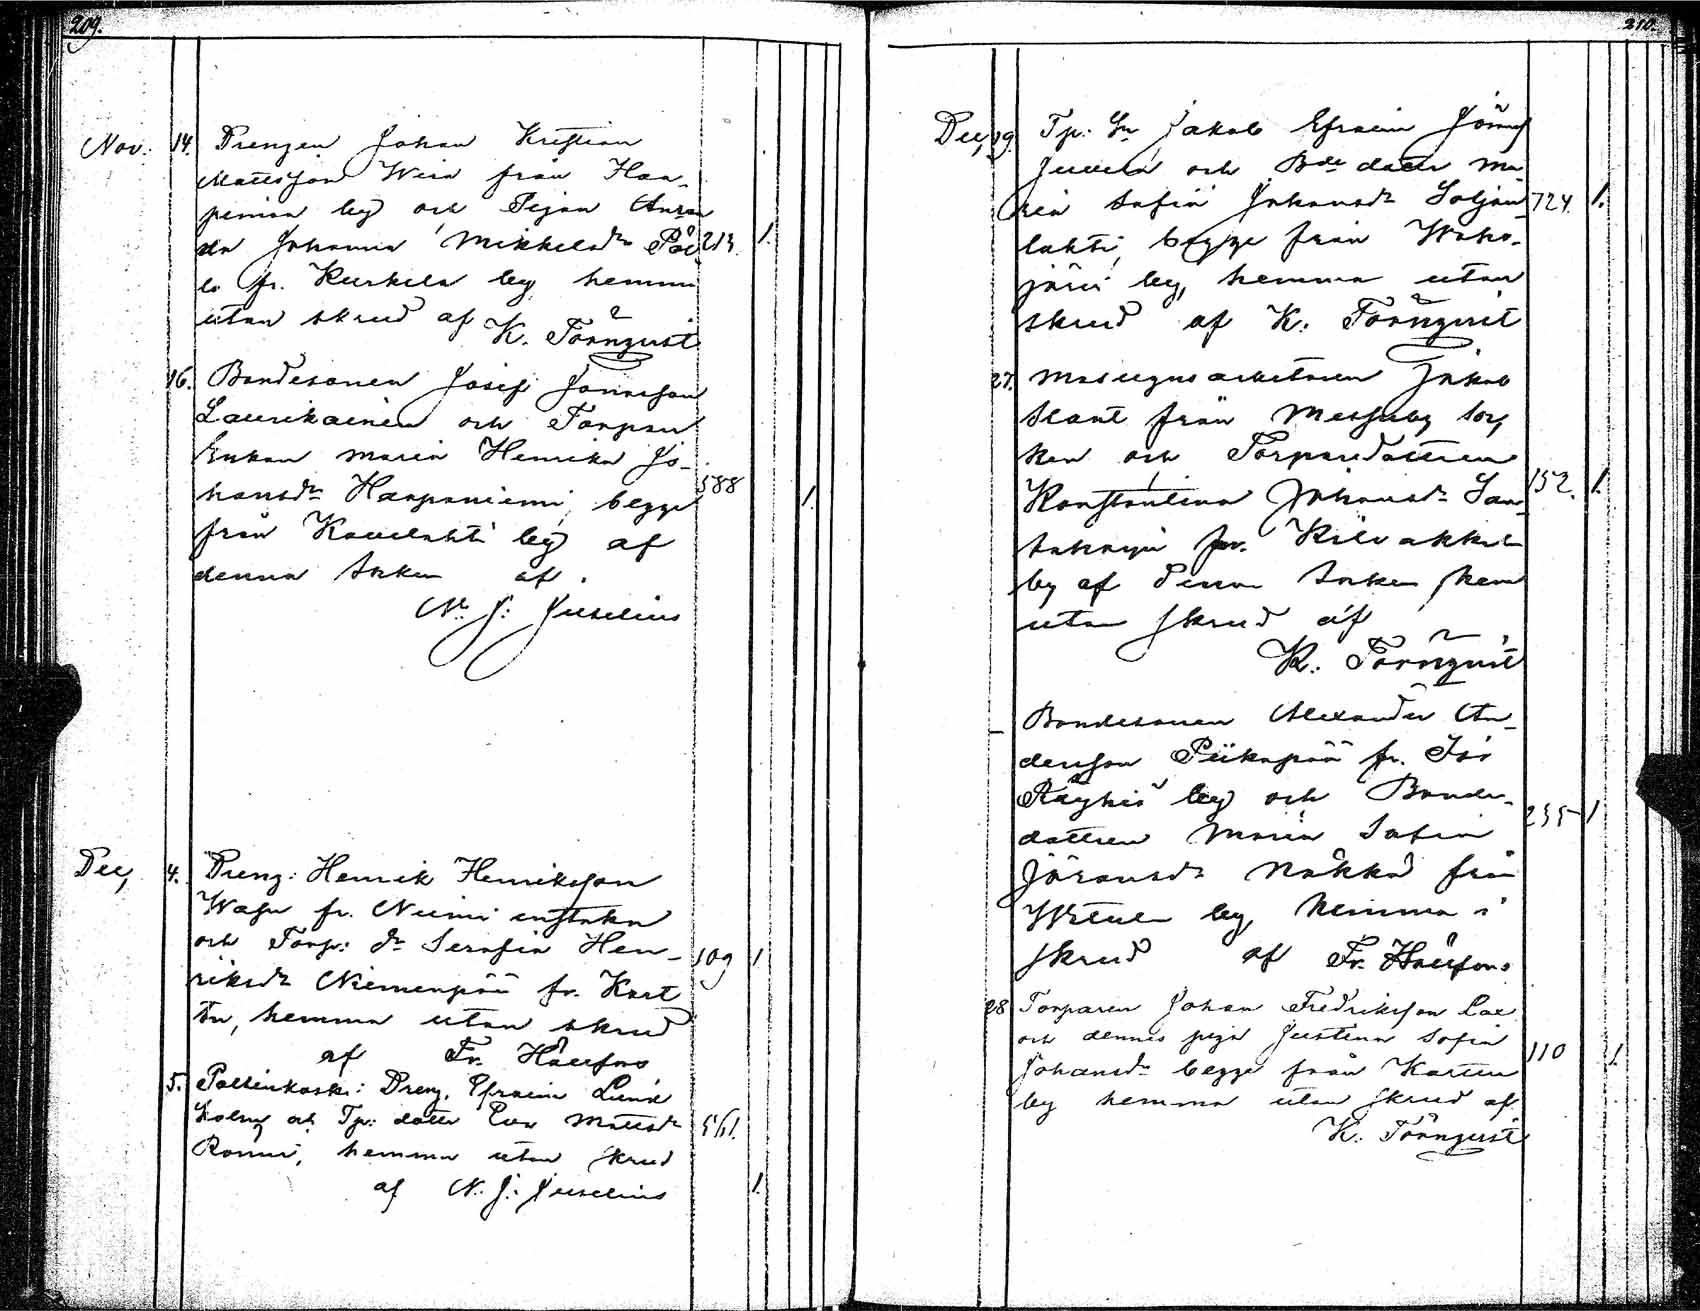 209.
Nov. 14. Drengen Johan Kristian
Mattsson Wira från Haa-
pimaa by och Pigan Aman-
da Johanna Mikkelsdr 213. 1.
lo fr. Kurkela by hemma
utan skrud af K. Törnqvist
16. Bondesonen Josef Jonasson
Laurikainen och Torpare
Enkan Maria Henrika Jo-
hansdr Haapaniemi, begge 588 1.
från Kauvelahti by af
denna Soken af
N. J. Juselius
Dec, 4. Dreng: Henrik Henriksson
Wasu fr. Niemi enstaka
och Torp: dr Serafia Hen- 109 1
riksdr Niemenpää fr. Kart
tu, hemma utan skrud
af Fr. Hällfors
5. Pattinkask: Dreng. Efraim Lind
holm och Tp: dotter Eva Mattsdr 561.
Ronni, hemma utan skrud
af N. J. Juselius 1.
210.
Dec, 19. Tp: Sn Jakob Efraim Jöranss
Juvela och Bde dottr Ma-
ria Sofia Johansdr Soljan 724. 1.
lahti, begge från Waha-
järvi by, hemma utan
skrud af K. Törnqvist
27. Masugnsarbetaren Jakob
Slant från Messuby Soc,
ken och Torparedottren
Konstantina Johansdr San- 152. 1.
taharju fr. Kilvakkala
by af denna Soken hem
utan skrud af
K. Törnqvist
– Bondesonen Alexander An-
dersson Piikapää fr. Iso
Röyhiö by och Bonde- 235 1
dottren Maria Sofia
Jöransdr Nokka från
by, hemma i
skrud af Fr. Hällfors
28 Torparen Johan Fredriksson
och dennes piga Justina Sofia
Johansdr begge från Karttu 110 1.
by hemma utan skrud af
K. Törnqvist